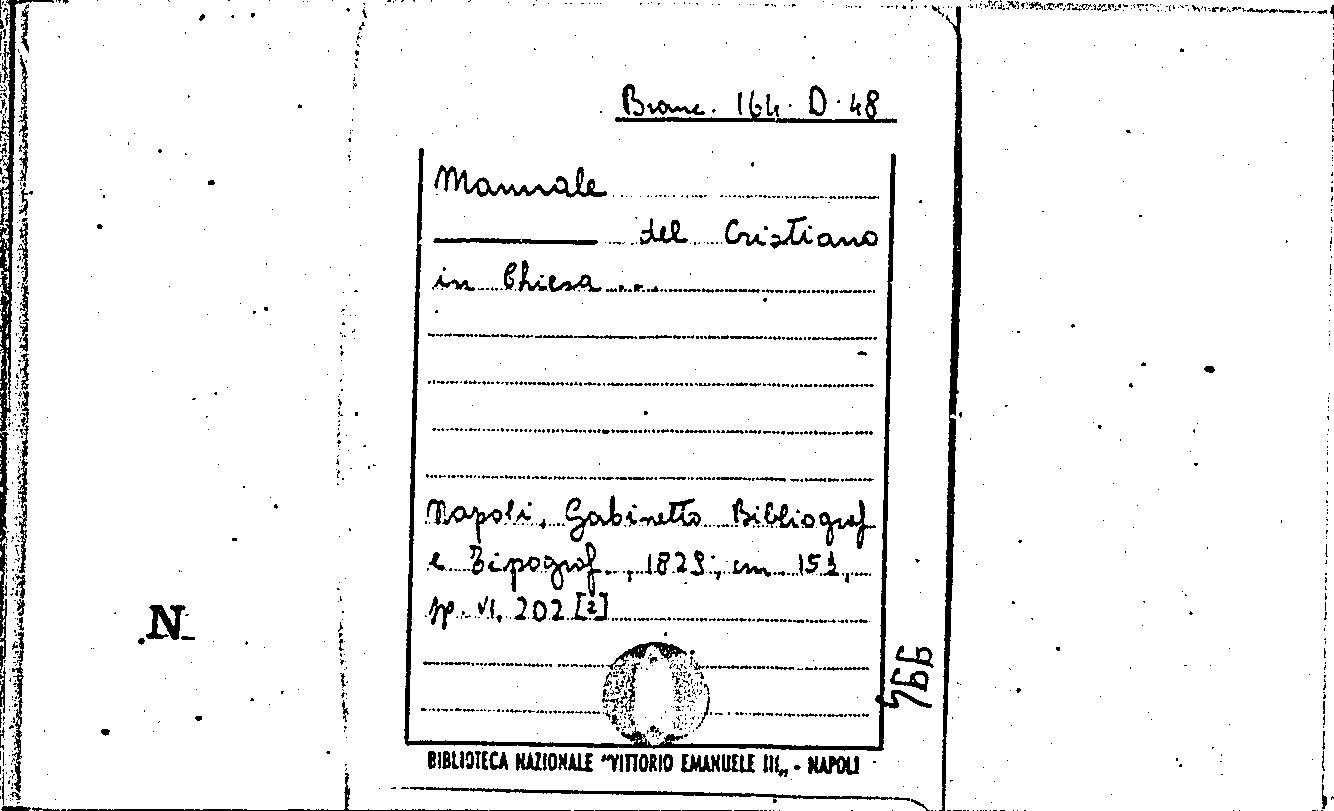 Branc. 164. D. 48
Manuale
del Cristiano
in Chiesa ...
Napoli, Gabinetto Bibliograf
e Tipograf., 1823; cm. 15½,
pp. VI, 202 [2]
BIBLIOTECA NAZIONALE "VITTORIO EMANUELE III„ - NAPOLI
N